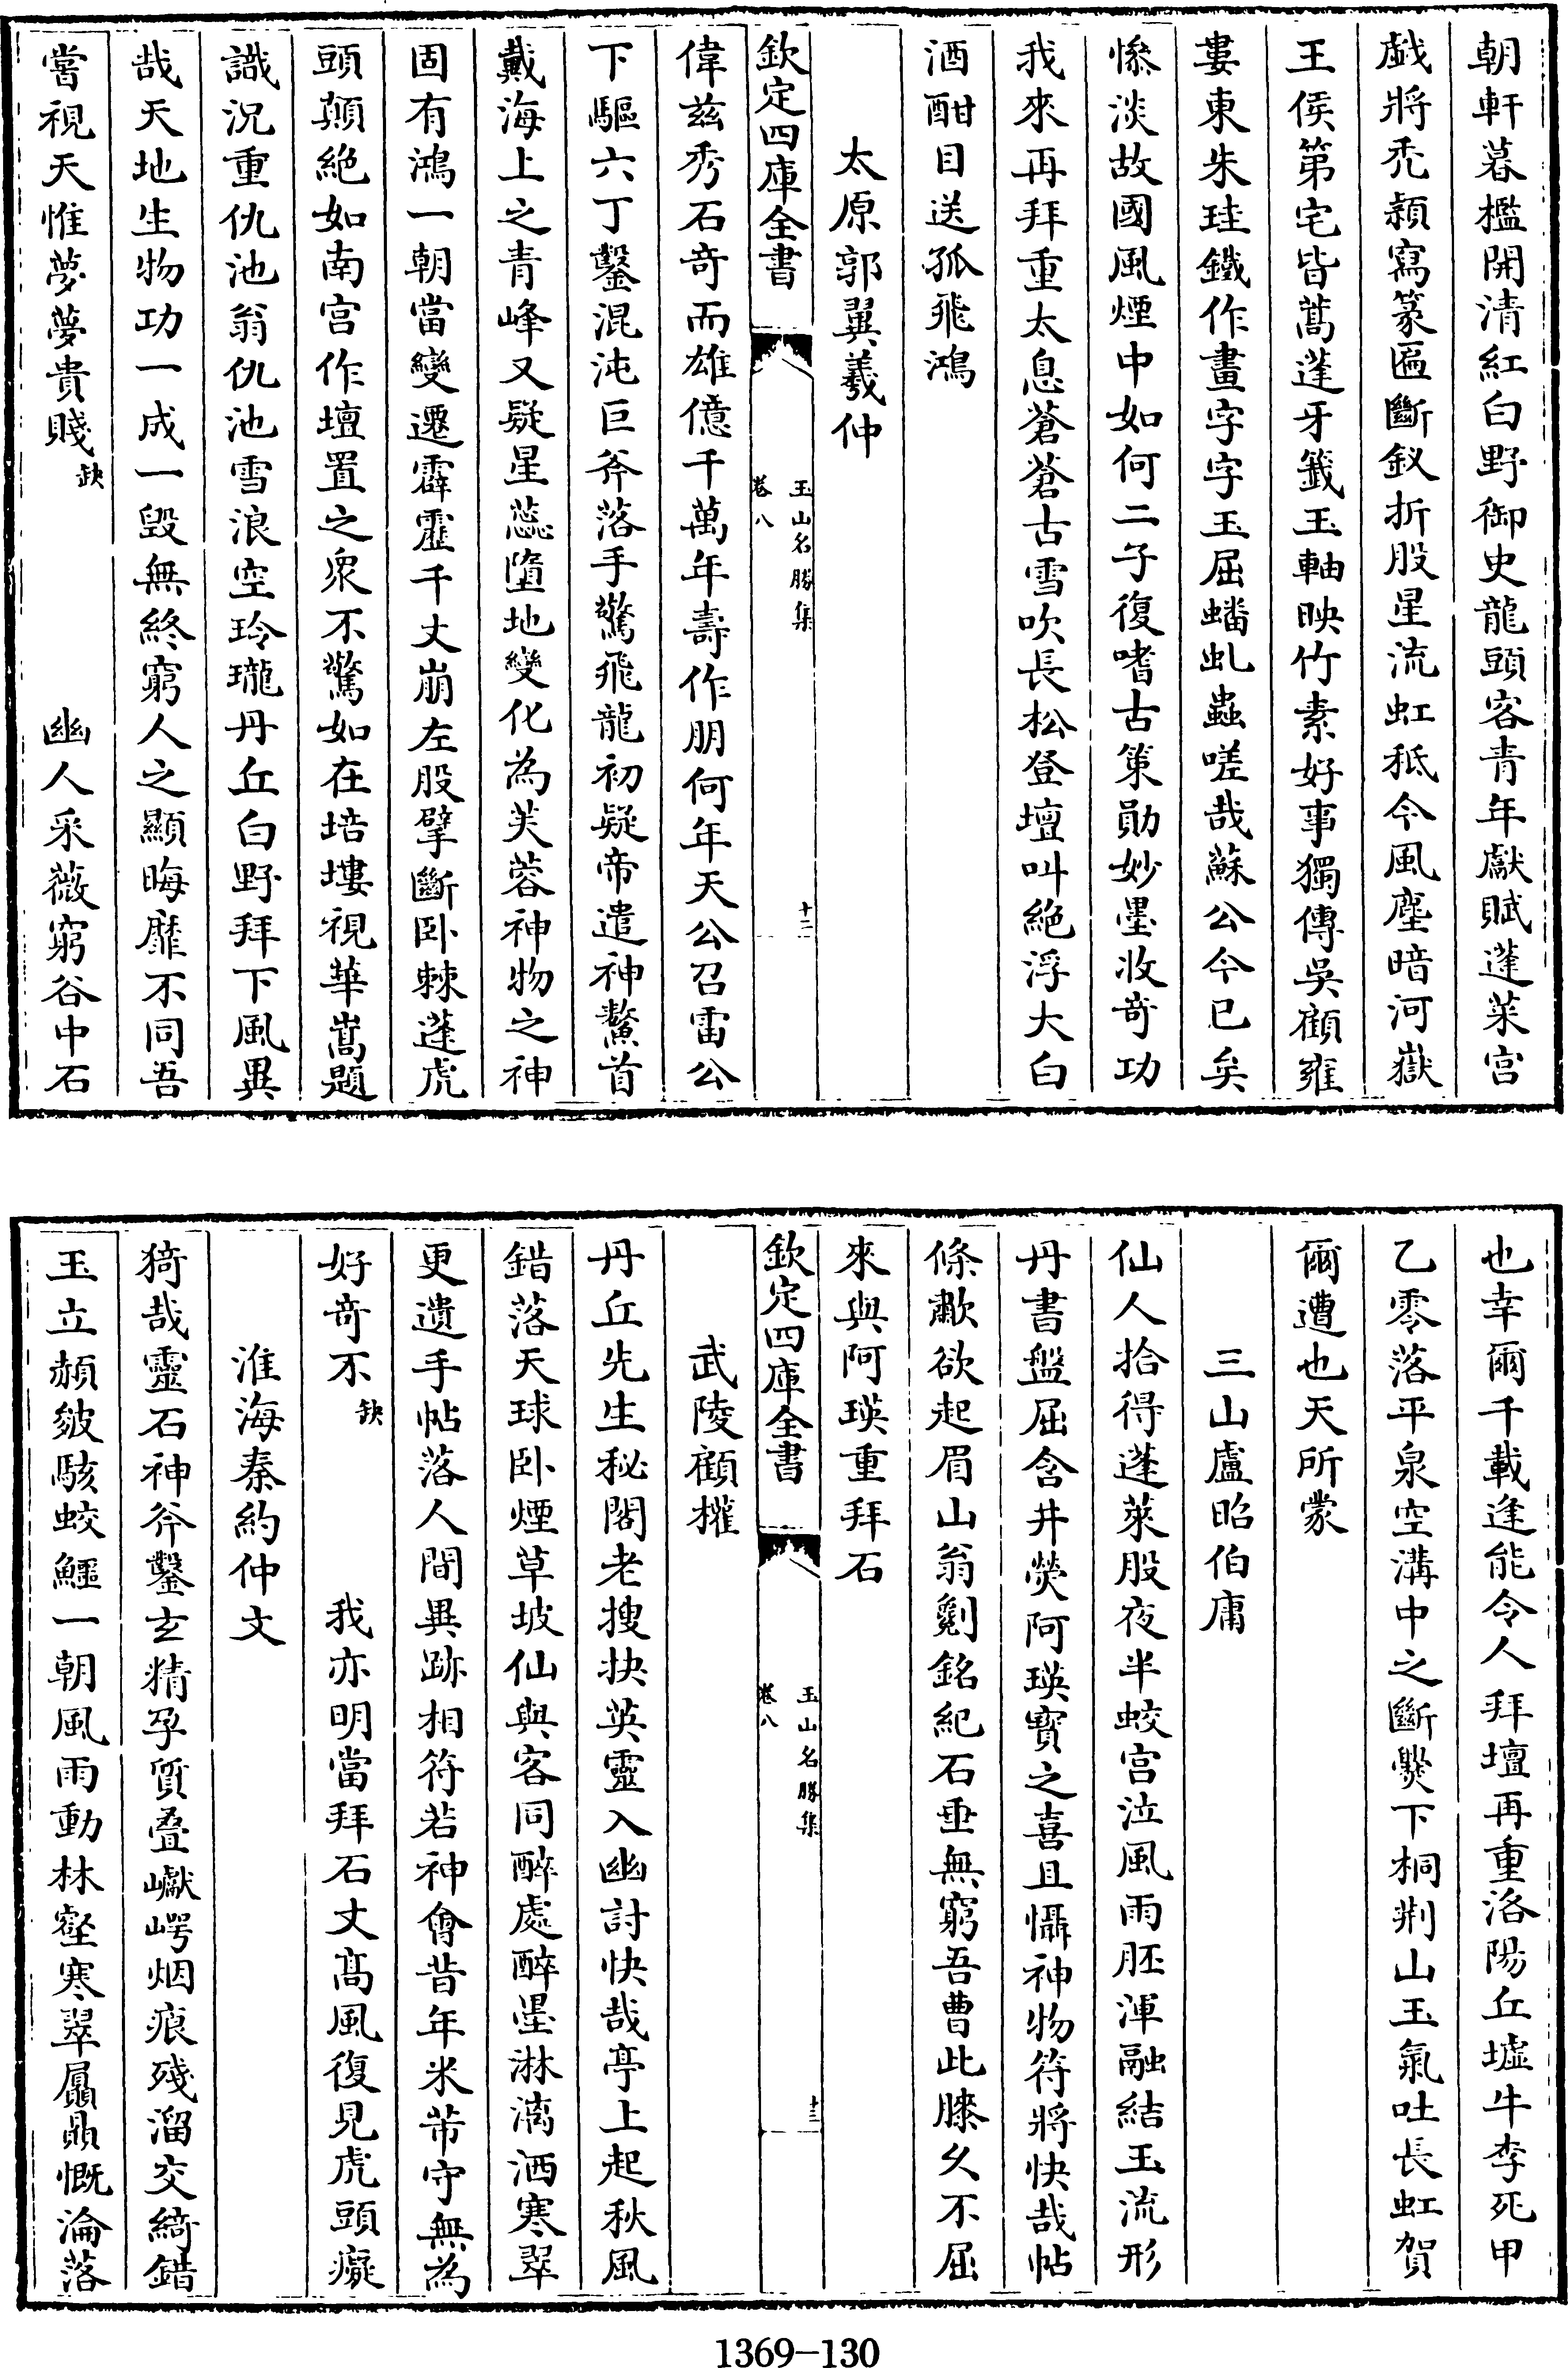 朝軒暮檻開清紅白野御史龍頭客青年獻賦蓬萊宫
戯將禿潁寫篆匾斷釵折股星流虹秪今風塵暗河嶽
王侯第宅皆蒿蓬牙籤玉軸映竹素好事獨傳吳顧雍
婁東朱珪鐵作畫字字玉屈蟠虬蟲嗟哉蘇公今已矣
慘淡故國風煙中如何二子復嗜古策勛妙墨收竒功
我來再拜重太息蒼蒼古雪吹長松登壇叫絶浮大白
酒酣目送孤飛鴻
太原郭翼羲仲
欽定四庫全書
玉山名勝集
卷八
十二
偉兹秀石竒而雄億千萬年壽作朋何年天公召雷公
下驅六丁鑿混沌巨斧落手驚飛龍初疑帝遣神鰲首
戴海上之青峰又疑星蕊墮地變化為芙蓉神物之神
固有鴻一朝當變遷霹靂千丈崩左股擘斷卧棘蓬虎
頭顛絶如南宫作壇置之衆不驚如在培塿視華嵩題
識況重仇池翁仇池雪浪空玲瓏丹丘白野拜下風異
哉天地生物功一成一毁無終窮人之顯晦靡不同吾
嘗視天惟夢夢貴賤缺 幽人采薇窮谷中石
也幸爾千載逢能令人拜壇再重洛陽丘墟牛李死甲
乙零落平泉空溝中之斷㸑下桐荆山玉氣吐長虹賀
爾遭也天所蒙
三山盧昭伯庸
仙人拾得蓬萊股夜半蛟宫泣風雨胚渾融結玉流形
丹書盤屈含井熒阿瑛寳之喜且懾神物符將快哉帖
條歘欲起眉山翁劖銘紀石垂無窮吾曹此膝久不屈
來與阿瑛重拜石
欽定四庫全書
玉山名勝集
卷八
十三
武陵顧權
丹丘先生秘閣老搜抉英靈入幽討快哉亭上起秋風
錯落天球卧煙草坡仙與客同醉處醉墨淋漓洒寒翠
更遺手帖落人間異跡相符若神會昔年米芾守無為
好竒不缺 我亦明當拜石丈髙風復見虎頭癡
淮海秦約仲文
猗哉靈石神斧鑿玄精孕質叠巘崿烟痕殘溜交綺錯
玉立頳皴駭蛟鱷一朝風雨動林壑寒翠贔屭慨淪落
1369-130